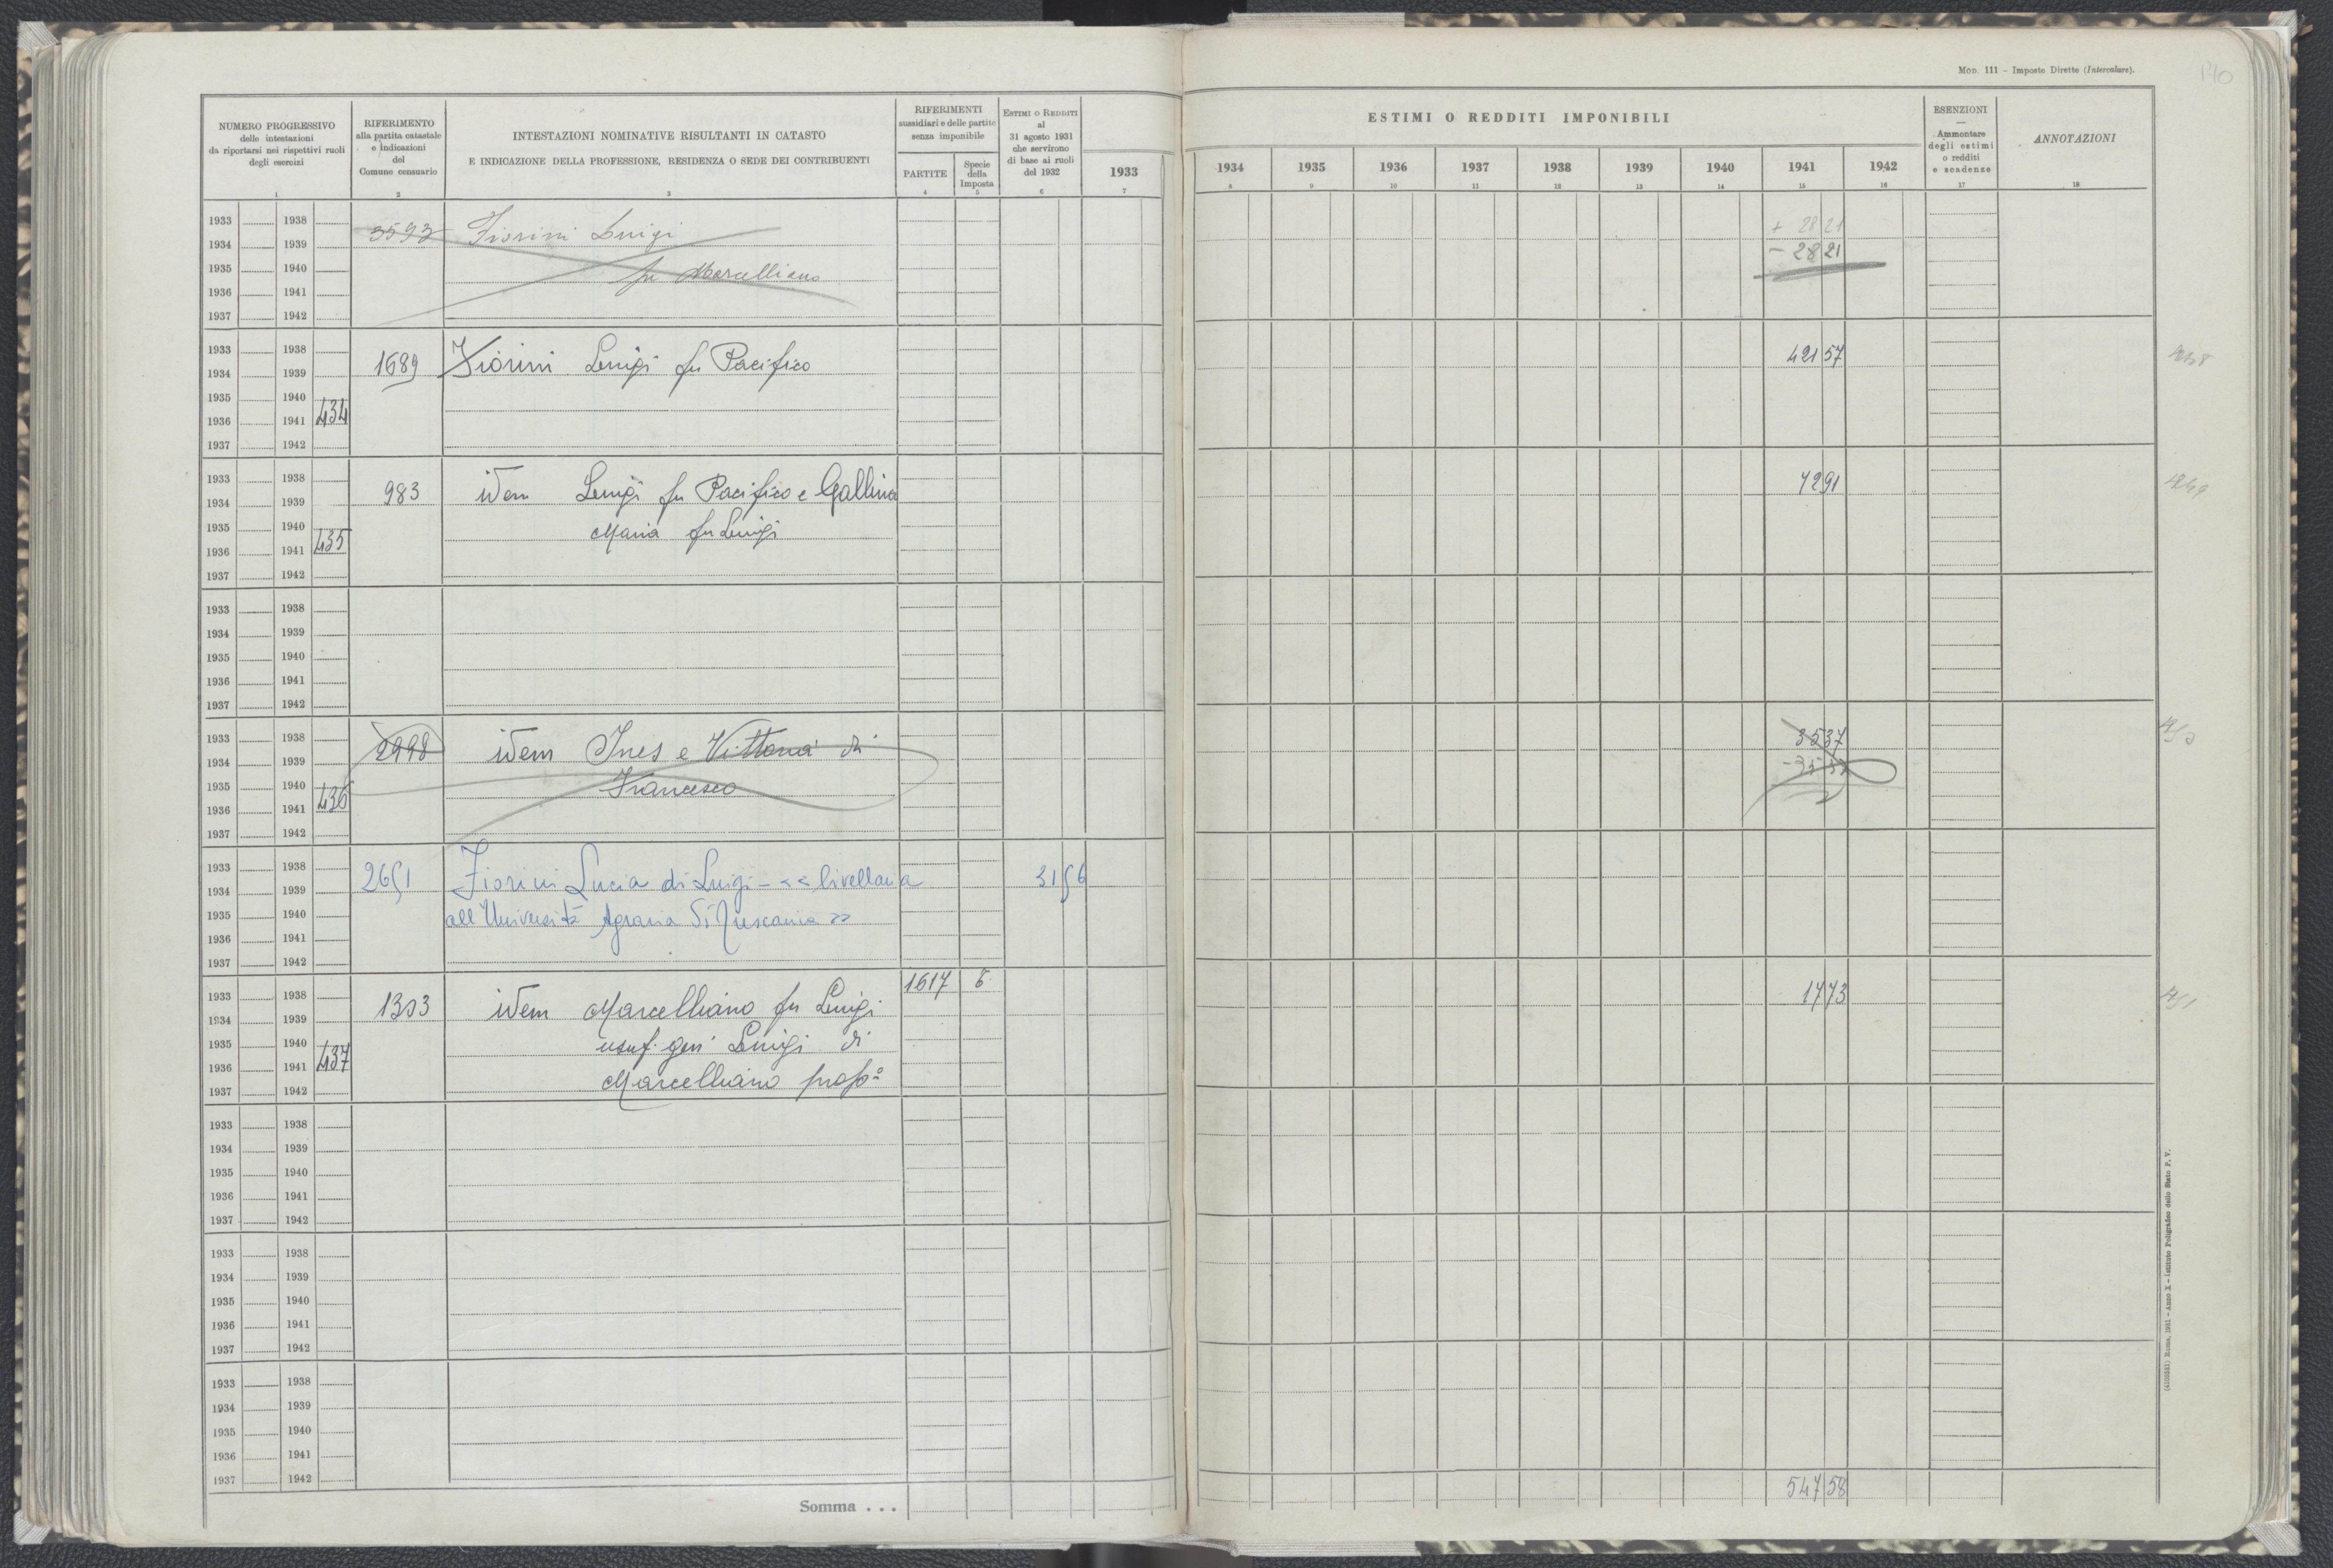 MOD. 111 - Imposte Dirette (Intercalare).
170
NUMERO PROGRESSIVO
delle intestazioni
da riportarsi nei rispettivi ruoli
degli esercizi
1
RIFERIMENTO
alla partita catastale
e indicazioni
del
Comune censuario
2
INTESTAZIONI NOMINATIVE RISULTANTI IN CATASTO
E INDICAZIONE DELLA PROFESSIONE, RESIDENZA O SEDE DEI CONTRIBUENTI
3
RIFERIMENTI
sussidiari e delle partite
senza imponibile
PARTITE
4
Specie
della
Imposta
5
ESTIMI O REDDITI
al
31 agosto 1931
che servirono
di base ai ruoli
del 1932
6
1933
7
ESTIMI O REDDITI IMPONIBILI
1934 1935 1936 1937 1938 1939 1940 1941 1942
8 9 10 11 12 13 14 15 16
ESENZIONI
—
Ammontare
degli estimi
o redditi
e scadenze
17
ANNOTAZIONI
18
1933 1938
3593 Fiorini Luigi + 28 21
1934 1939
- 28 21
1935 1940
fu Marcelliano
1936 1941
1937 1942
1933 1938
1689 Fiorini Luigi fu Pacifico 421 57
1934 1939
1935 1940
1936 1941 434
1937 1942
1933 1938
983 idem Luigi fu Pacifico e Gallina 72 91
1934 1939
1935 1940
Maria fu Luigi
1936 1941 435
1937 1942
1933 1938
1934 1939
1935 1940
1936 1941
1937 1942
1933 1938
2998 idem Ines e Vittoria di 35 37
1934 1939
1935 1940
Francesco
1936 1941 436
1937 1942
1933 1938
2651 Fiorini Lucia di Luigi - << livellaria 31 56
1934 1939
1935 1940
all'Università Agraria di Tuscania >>
1936 1941
1937 1942
1617 8
1933 1938
1303 idem Marcelliano fu Luigi 17 73
1934 1939
1935 1940
usuf. gen. Luigi di
1936 1941 437
Marcelliano propº
1937 1942
1933 1938
1934 1939
1935 1940
1936 1941
1937 1942
1933 1938
1934 1939
1935 1940
1936 1941
1937 1942
1933 1938
1934 1939
1935 1940
1936 1941
1937 1942
Somma . . . 547 58